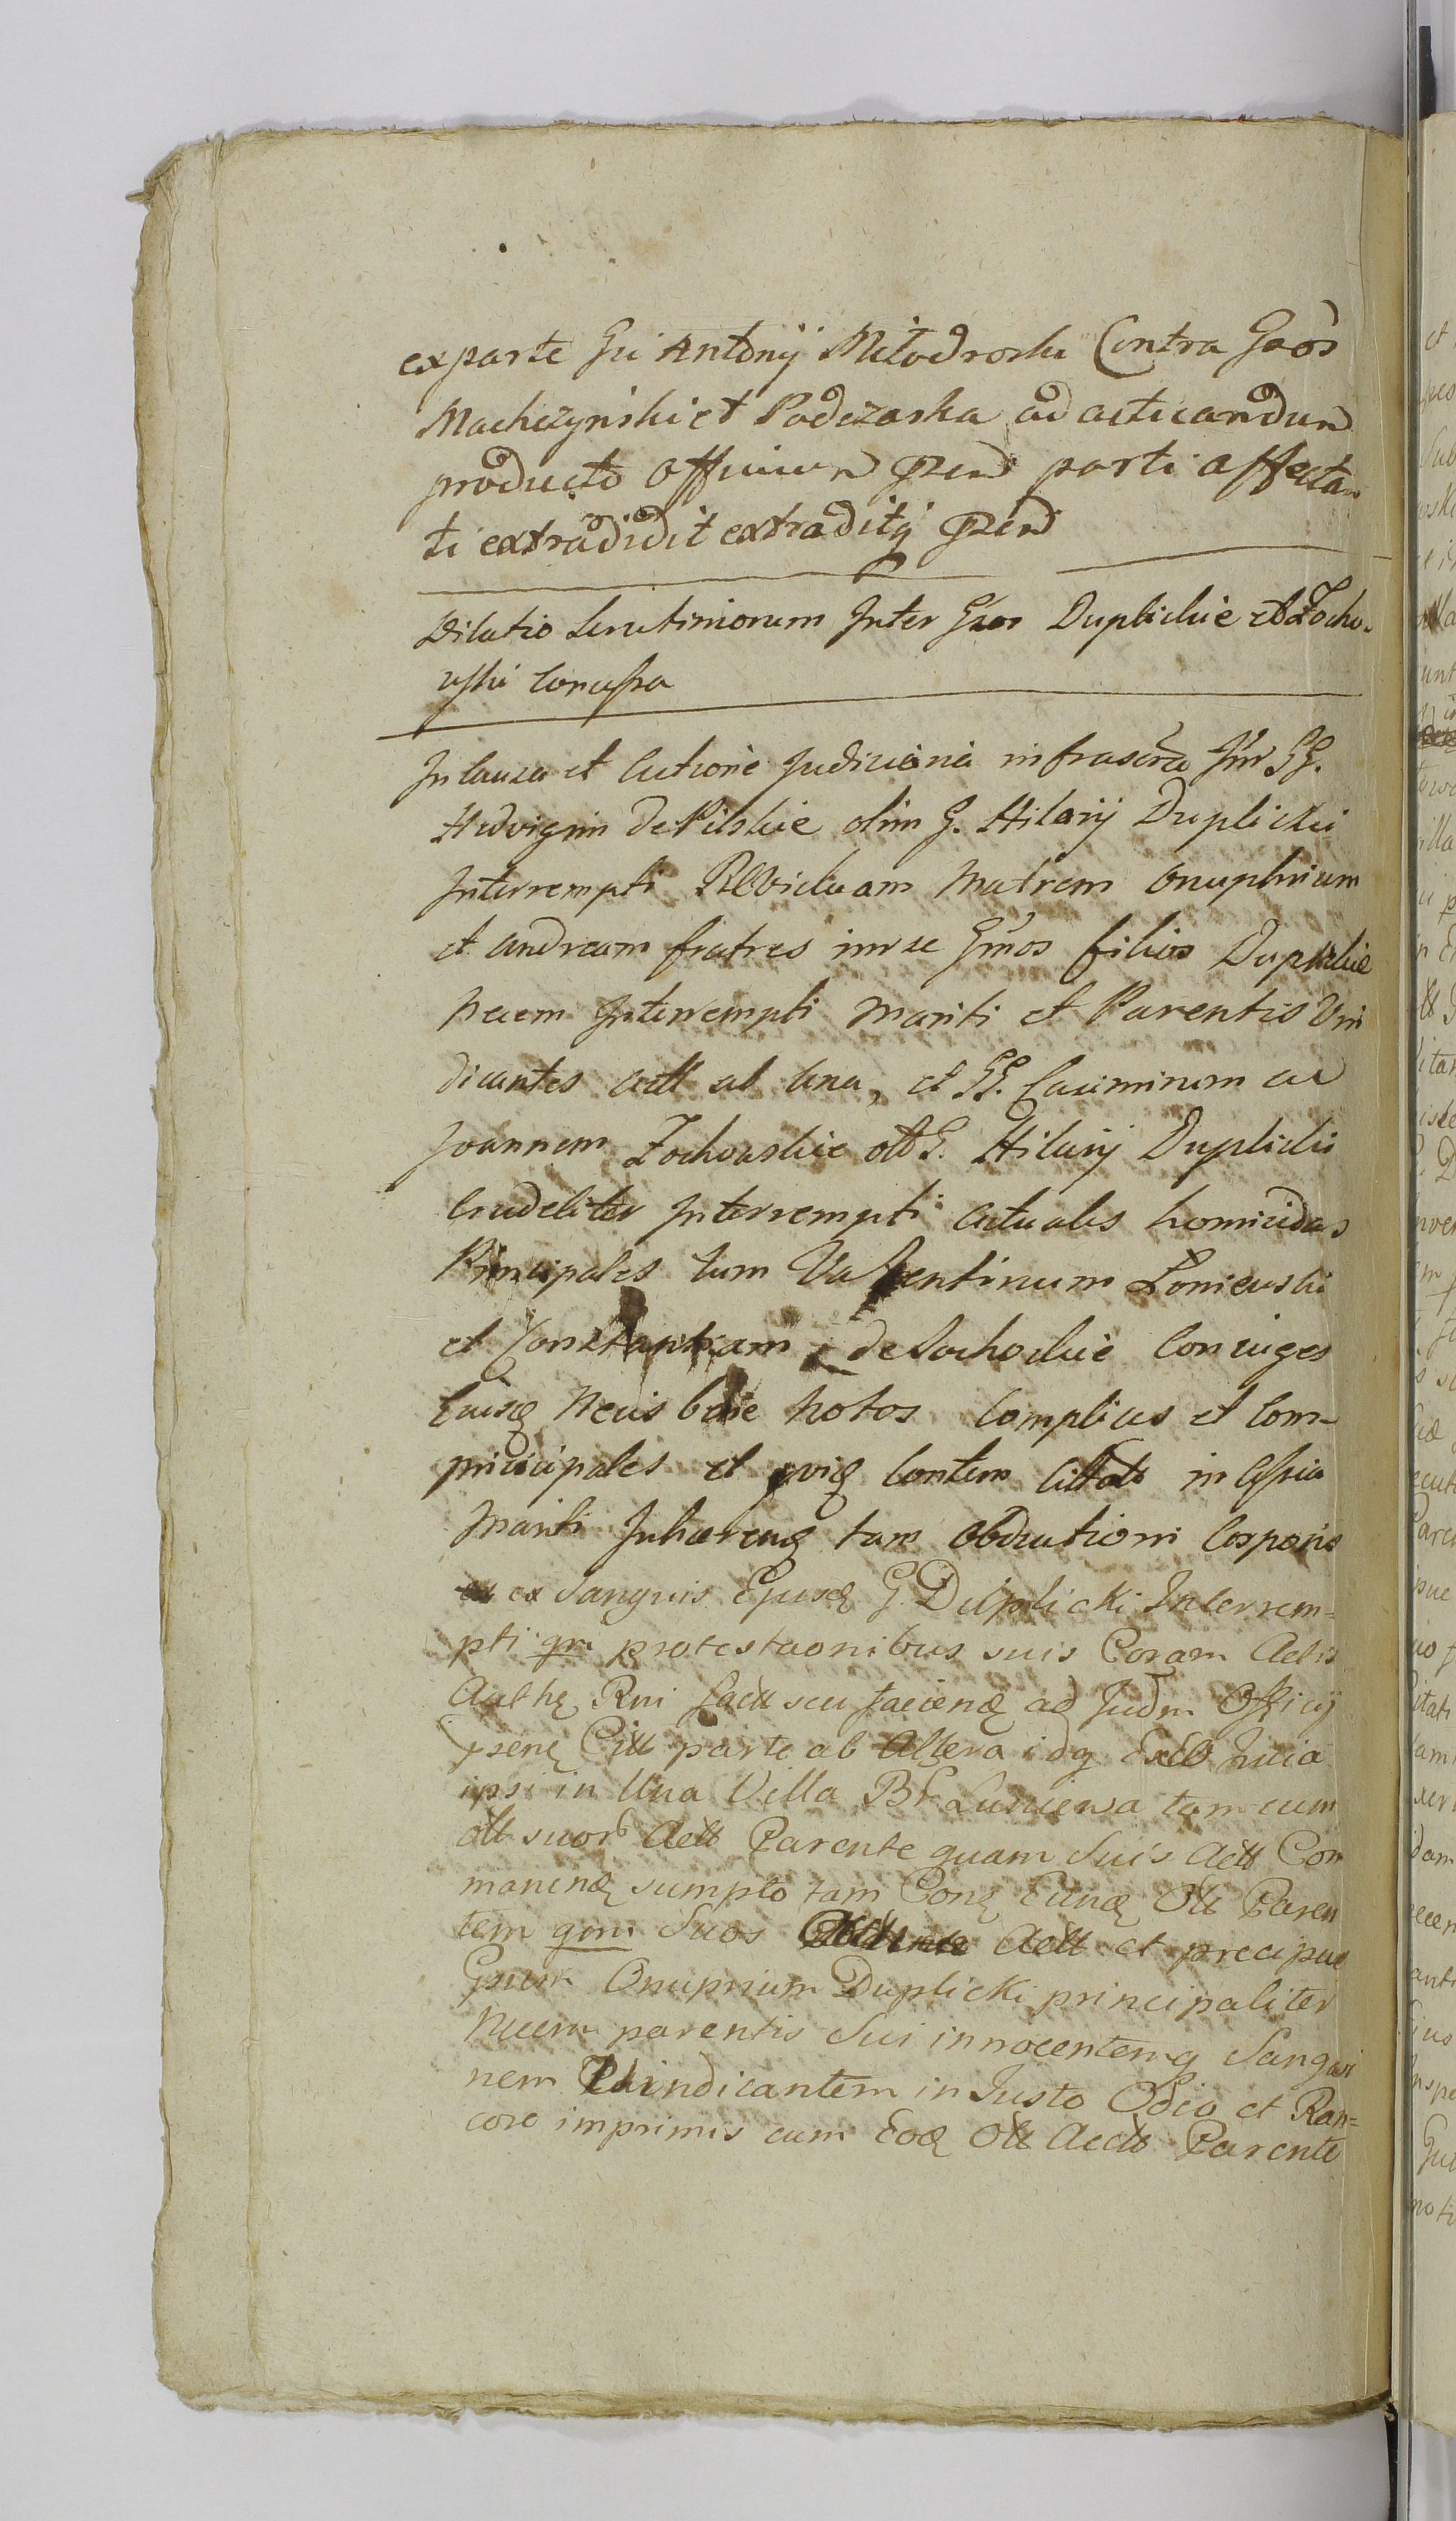 ex parte Gñi Antonij Miłodroski Contra Gnos
Machczynski et Podczaska ad acticandum
producto officium pzens parti affectan
ti extradidit extraditq pzend
Dilatio Scrutiniorum Inter Gnos Duplickie et Zocho.
wski concessa
In Causa et Actione Judiciaria infrascra Int GG.
Hedvigim de Pilskie olim G. Hilarij Duplickii
Interrempti Relictuam Matrem Onuphrium
et Andream fratres inter se Gnos filios Duplickie
necem Interrempti Mariti et Parentis Vin
dicantes actt ab una, et GG. Casimirum ac
Joannem Zochowskie olt G. Hilarij Duplickii
Crudeliter Interrempti actuales homicidas
Principales tum Valentinum Łoniewski
et Constantiam de Sochockie Coniuges
Eiusq Necis bene notos Complices et Com-
principales et
Mariti Inhaerenq tam obductioni Corporis
ex sanguis Ejusq G. Duplicki Interrem=
pti qm protestaonibus suis Coram Actis
factt seu facienq ad Judm Officij
psenq Citt parte ab Altera idq
ipsi in Una Villa Br Łuniewa tam cum
olt suorb Actt Parente quam Suis Actt Com
manenq sumpto tam Conq Eunq Olt Paren
tem qm Suos Actt et precipue
Gnum Onuprium Duplicki principaliter
Necem parentis Sui innocentemq Sangui
nem Vindicantem in Justo Odio et Ran=
core imprimis cum Eoq Olt Actt Parente